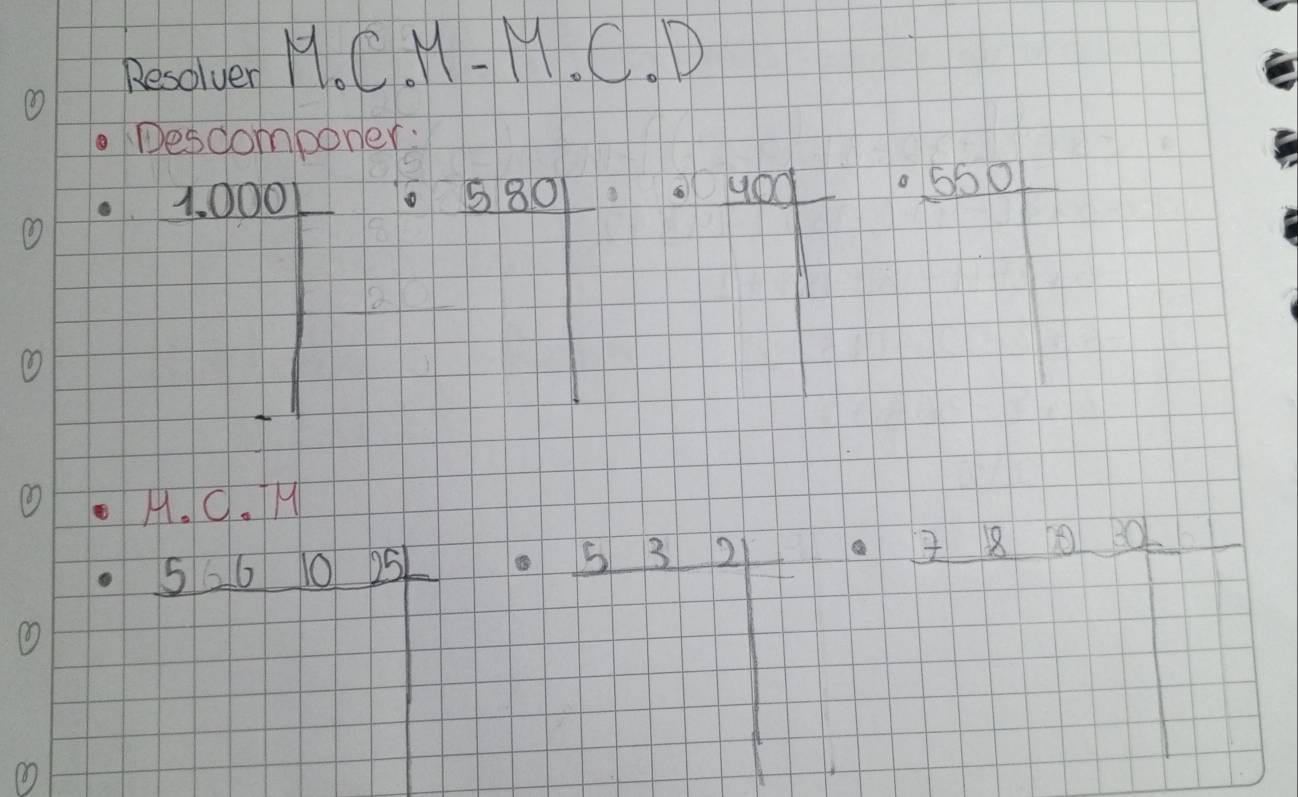 Resolver M.C.M - M.C.D
• Descomponer:
• 1.000 • 580 • 400 • 550
• M.C.M
• 5 6 10 25 • 5 3 2 • 7 8 20 30